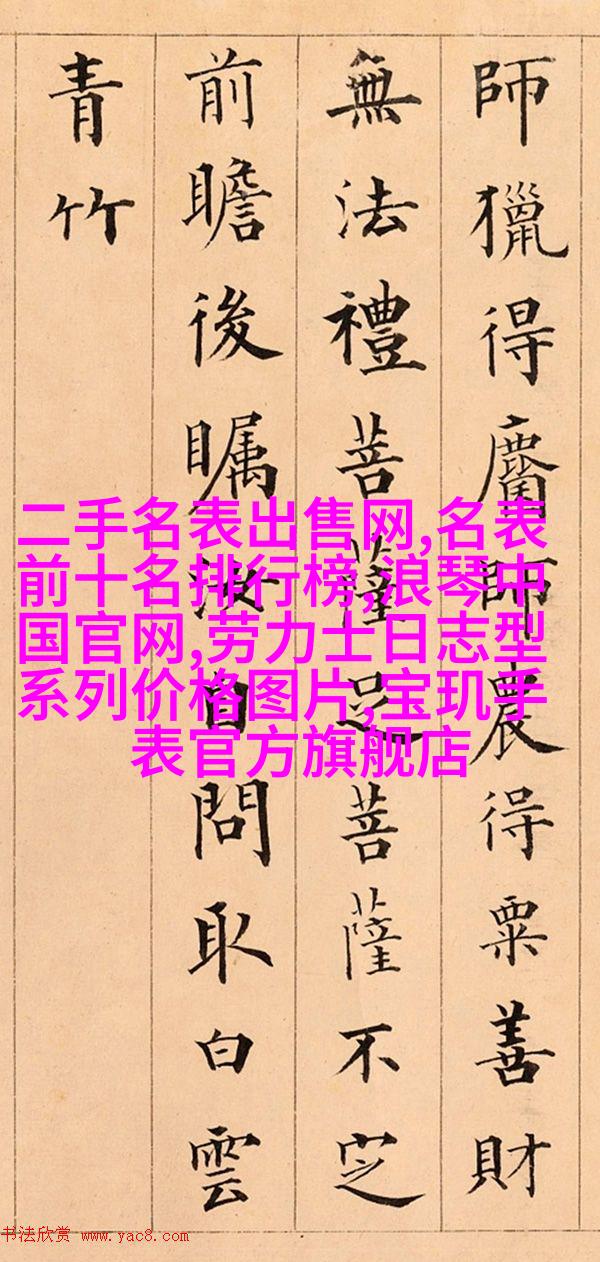 師獵得師農得粟善財
無法禮菩薩菩薩不定
前瞻後矚汝自問取白雲
青竹
二手名表出售网,名表
前十名排行榜,浪琴中
国官网,劳力士日志型
系列价格图片,宝玑手
表官方旗舰店
书法欣赏 www.yac8.com